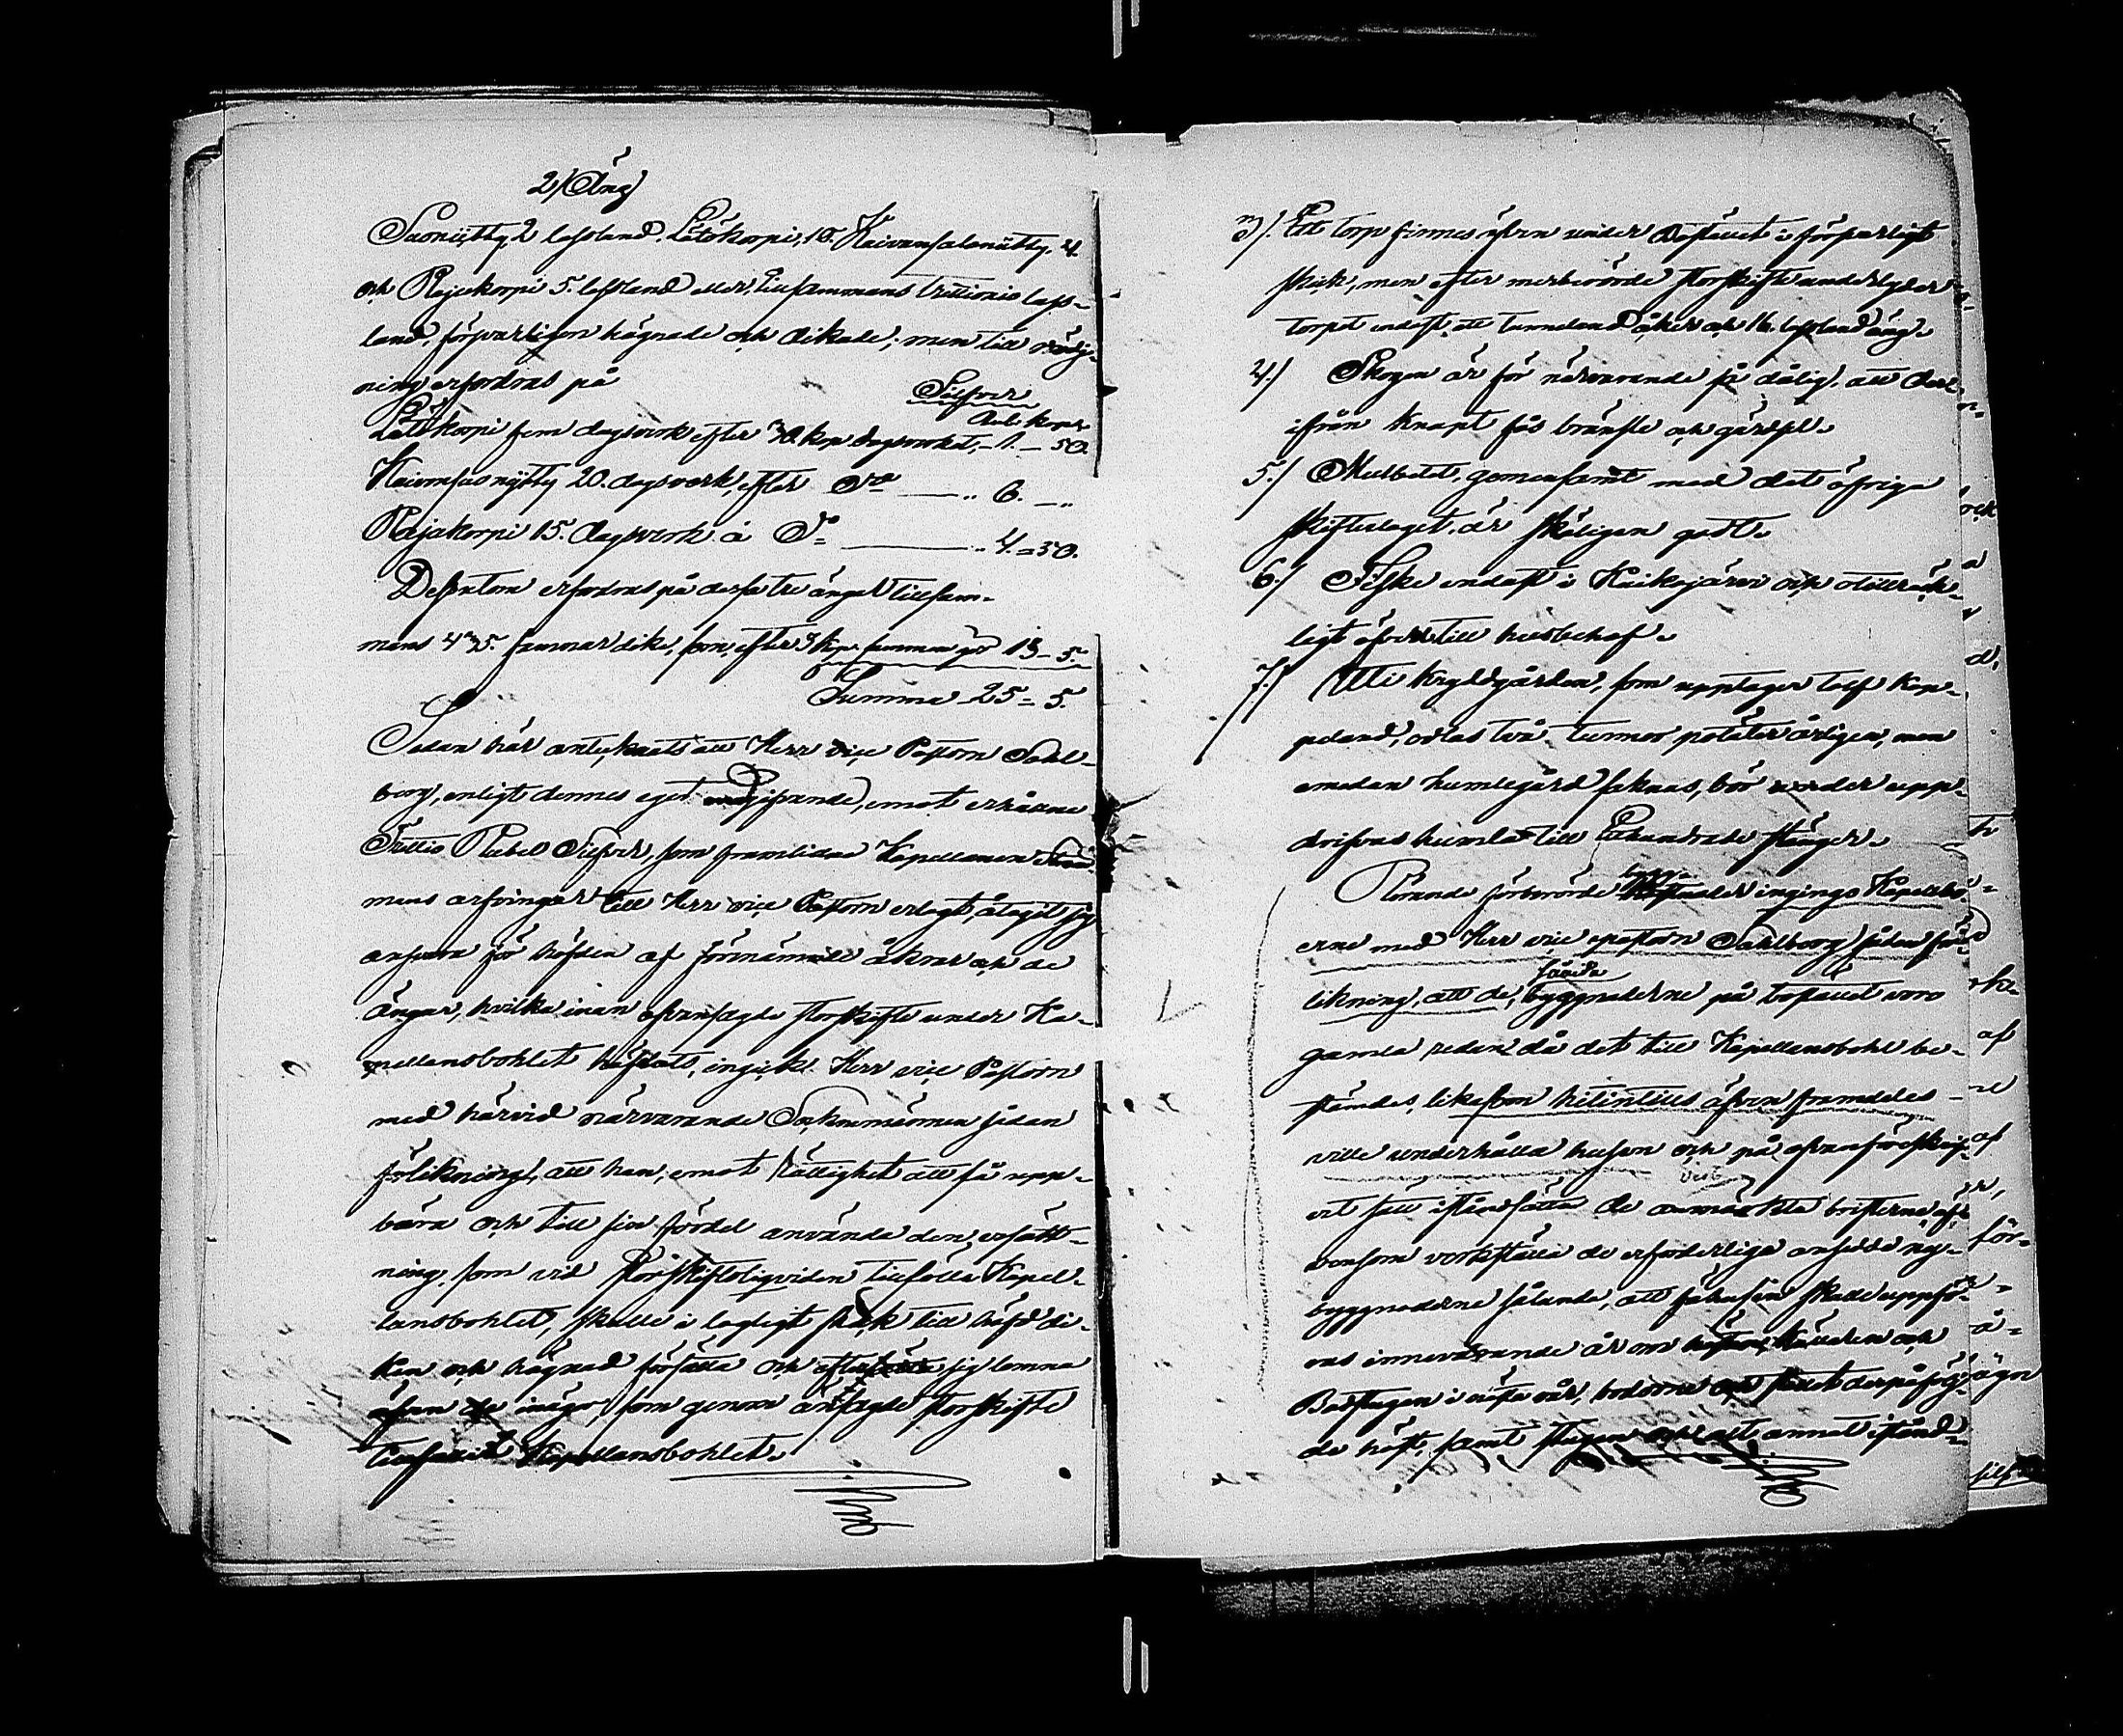 2/ Äng
Suoniitty 2 lassland, Lätökorpi, 10. Kaivansaloniitty, 4.
och Rajakorpi 5. lassland eller, tillsammans trettionio lass-
land, försvarligen hägnade och dikade; men till rödj-
ning erfordras på
Silfver
Rub. kop.
Lätökorpi fem dagsverk efter 30. kop. dagsverket, - 1. - 50.
Kaivansuonytty 20. dagsverk, efter Do — " 6. — "
Rajakorpi 15. dagsverk à Do — " 4. = 50.
Dessutom erfordras på dessa tre ängar tillsam-
mans 435. famnar dike, som, efter 3 kop. famnen gör 13 - 5.
Summa 25 = 5.
Sedan här antecknats att Herr vice Pastorn Sahl-
berg, enligt dennes eget medgifvande, emot erhållne
Trettio Rubel Silfver, som framlidne Kapellanen
mens arfvingar till Herr vice Pastorn erlagt, åtagit sig
ansvara för häfden af förenämnde åkrar och de
ängar, hvilka innan ofvansagde storskifte under Ka-
pellansbohlet häfdats, ingick Herr vice Pastorn
med härvid närvarande Socknemännen sådan
förlikning, att han, emot rättighet att få upp-
bära och till sin fördel använda den ersätt-
ning, som vid storskiftsliqviden tillföll Kapel-
lansbohlet, skulle i lagligt skick till häfd di-
ken och hägnad försätta och efter sig lemna
äfven de inägor, som genom ansagde storskifte
tillfallit Kapellansbohlet.
3/. Ett torp finnes äfven under Bostället i försvarligt
skick, men efter merberörde storskifte underlyder
torpet endast ett tunneland åker och 16. lassland äng.
4./ Skogen är för närvarande så dålig, att der-
ifrån knapt fås bränsle och gärdsel.
5./ Mulbetet, gemensamt med det öfriga
skifteslaget, är skäligen godt.
6./ Fiske endast i Kuikojärvi och otillräck-
ligt äfven till husbehof.
7./ Uti krydgården, som upptager tolf kap-
peland, odlas två tunnor potäter årligen, men
emedan humlegård saknas, bör upp-
drifvas humla till Etthundrade stänger.
Rörande förberörde bygg-
nader ingingo Kapellbo-
erne med Herr vice pastorn Sahlberg sådan för-
likning, att de, som
byggnaderne på bostället voro
gamla redan då det till Kapellansbohl be-
stämdes, likasom hitintills äfven framdeles
ville underhålla husen och på ofvanföreskrif-
vit sätt iståndsätta de anmärkta bristerna äf-
vensom verkställa de erforderliga ansedde ny-
byggnaderne sålunda, att fähusen skulle uppfö-
ras innevarande år om hösten, källaren och
Badstugan i nästa vår, bodorne och derpåföljan-
de höst, samt stugan och allt annat istånd-